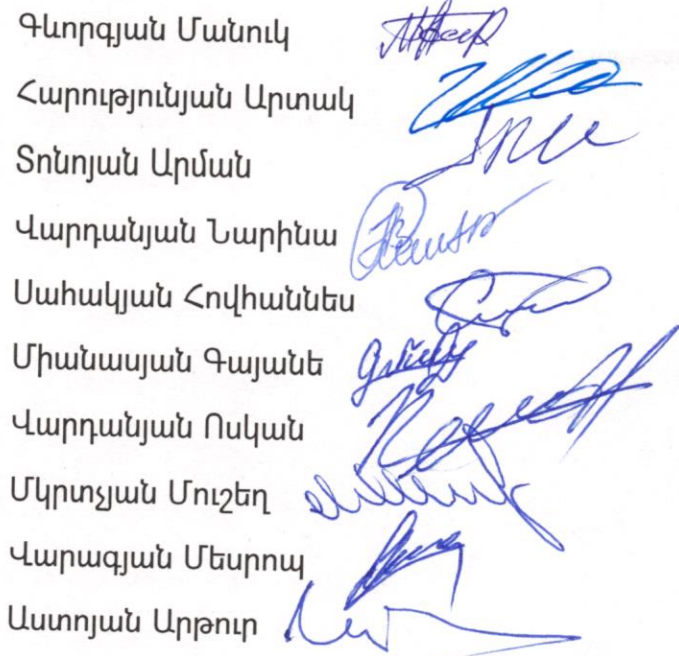 Գևորգյան Մանուկ
Հարությունյան Արտակ
Տոնոյան Արման
Վարդանյան Նարինա
Սահակյան Հովհաննես
Միանասյան Գայանե
Վարդանյան Ոսկան
Մկրտչյան Մուշեղ
Վարագյան Մեսրոպ
Աստոյան Արթուր